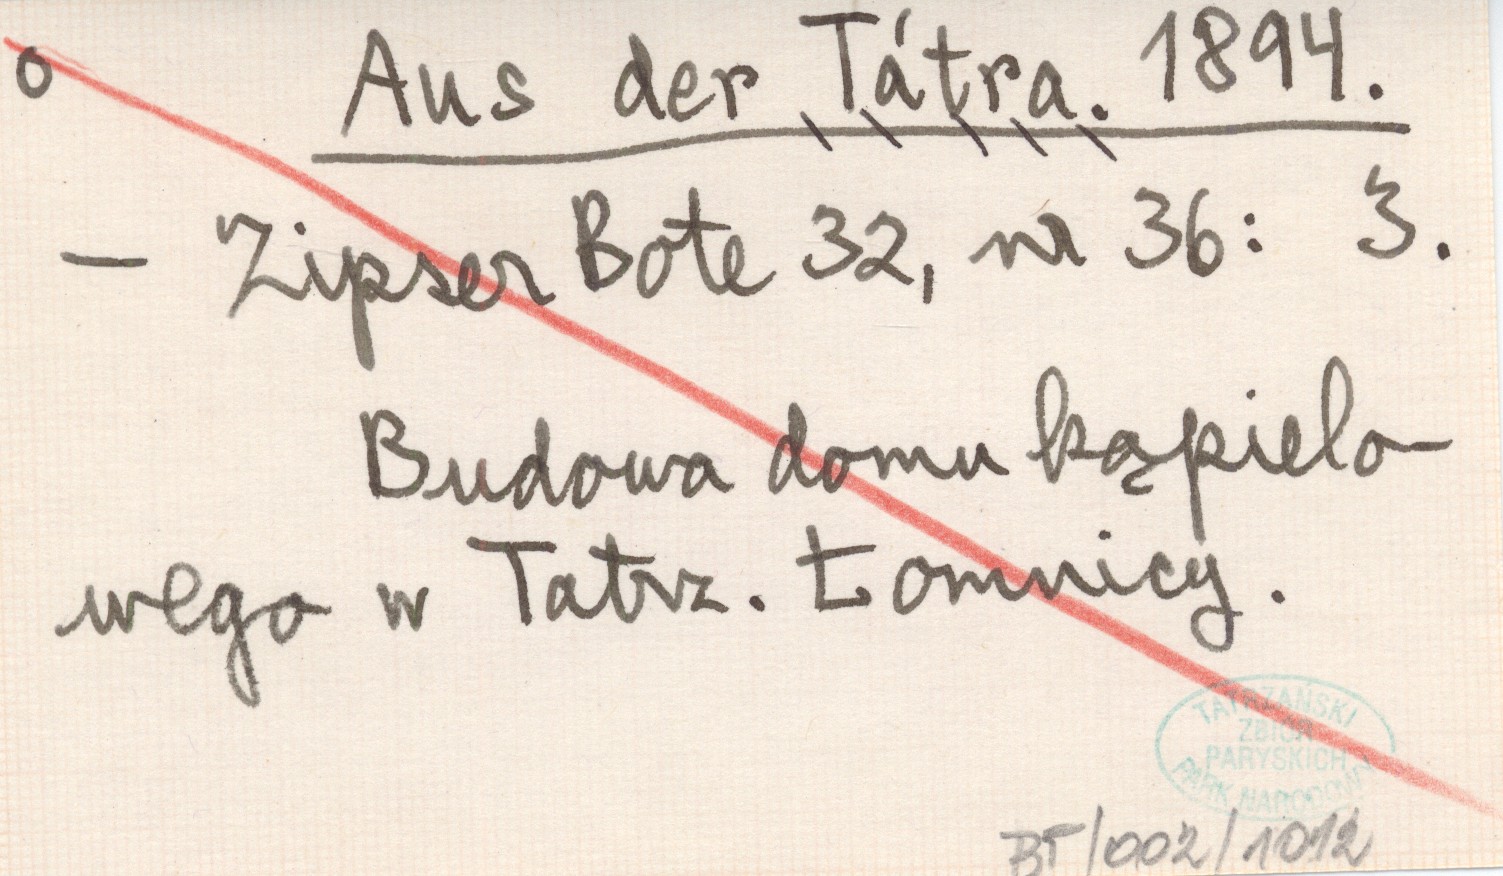 o Aus der Tátra. 1894.
— Zipser Bote 32, nr 36: 3.
Budowa domu kąpielo-
wego w Tatrz. Łomnicy.
TATRZAŃSKI
ZBIÓR
PARYSKICH
PARK NARODOWY
BT/002/1012